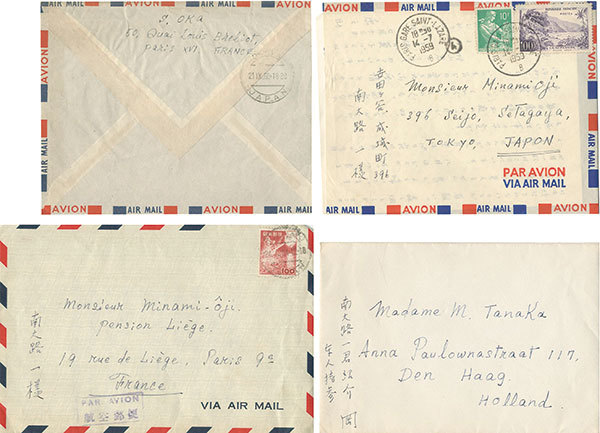 AVION AIR MAIL AVION AIR MAIL AVION
OKA
50, Quai Louis Blériot
PARIS XVI FRANCE
JAPAN
AVION AIR MAIL AVION AIR MAIL AVION
PARIS-GARE SAINT-LAZARE
14-7
1959
8
10F
100F
Monsieur Minami Ôji
396 Seijo, Setagaya,
TOKYO, JAPON
世田ヶ谷成城町396
南大路一様
PAR AVION
VIA AIR MAIL
AVION AIR MAIL AVION AIR MAIL AVION
100
Monsieur Minami-Ôji
pension Liège.
19 rue de Liège, Paris 9e
France
南大路一様
PAR AVION
航空郵便
VIA AIR MAIL
Madame M. Tanaka
Anna Paulownastraat 117,
Den Haag.
Holland.
南大路一君紹介
本人持参
岡